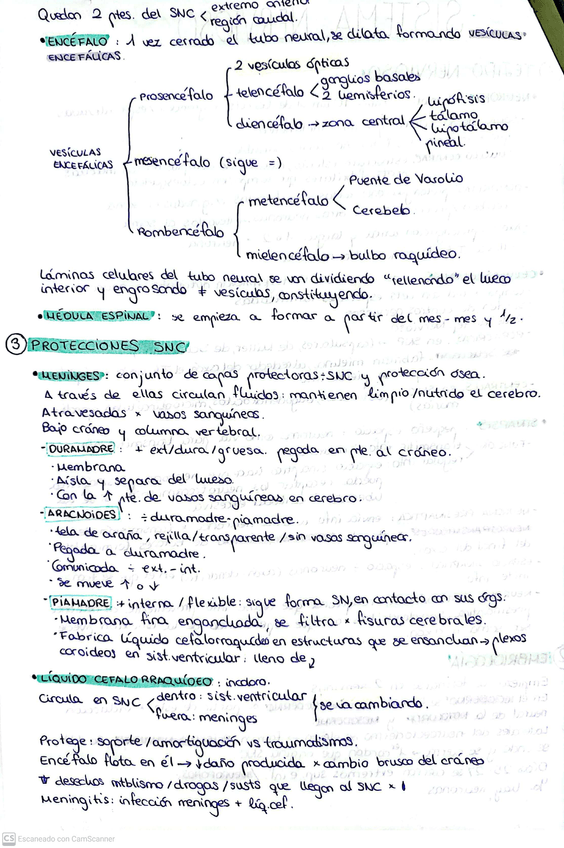 Quedan 2 ptes. del SNC < extremo anterior
región caudal.
• ENCÉFALO : 1 vez cerrado el tubo neural, se dilata formando VESÍCULAS
ENCEFÁLICAS.
VESÍCULAS ENCEFÁLICAS
Prosencéfalo
2 vesículas ópticas
telencéfalo < ganglios basales
2 hemisferios.
diencéfalo → zona central
hipófisis
tálamo
hipotálamo
pineal.
mesencéfalo (sigue =)
Rombencéfalo
metencéfalo < Puente de Varolio
Cerebelo.
mielencéfalo → bulbo raquídeo.
Láminas celulares del tubo neural se van dividiendo "rellenando" el hueco
interior y engrosando ≠ vesículas, constituyendo.
• MÉDULA ESPINAL : se empieza a formar a partir del mes - mes y 1/2.
③ PROTECCIONES SNC
• MENINGES : conjunto de capas protectoras ÷ SNC y protección ósea.
A través de ellas circulan fluidos: mantienen limpio/nutrido el cerebro.
Atravesadas × vasos sanguíneos.
Bajo cráneo y columna vertebral.
- DURAMADRE : + ext/dura/gruesa. pegada en pte. al cráneo.
· Membrana
· Aísla y separa del hueso.
· Con la ↑ pte. de vasos sanguíneas en cerebro.
- ARACNOIDES : ÷ duramadre-piamadre.
· tela de araña, rejilla/transparente/sin vasos sanguíneos.
· Pegada a duramadre.
· Comunicada ÷ ext.-int.
· Se mueve ↑ o ↓
- PIAMADRE : + interna / flexible: sigue forma SN, en contacto con sus órgs.
· Membrana fina enganchada, se filtra × fisuras cerebrales.
· Fabrica líquido cefalorraquídeo en estructuras que se ensanchan → plexos
coroideos en sist. ventricular: lleno de
• LÍQUIDO CEFALORRAQUÍDEO : incoloro.
Circula en SNC < dentro: sist. ventricular
fuera: meninges
} se va cambiando.
Protege: soporte/amortiguación vs traumatismos.
Encéfalo flota en él → ↓ daño producida × cambio brusco del cráneo
desechos mtblismo/drogas/susts que llegan al SNC ×
Meningitis: infección meninges + líq.cef.
CS Escaneado con CamScanner